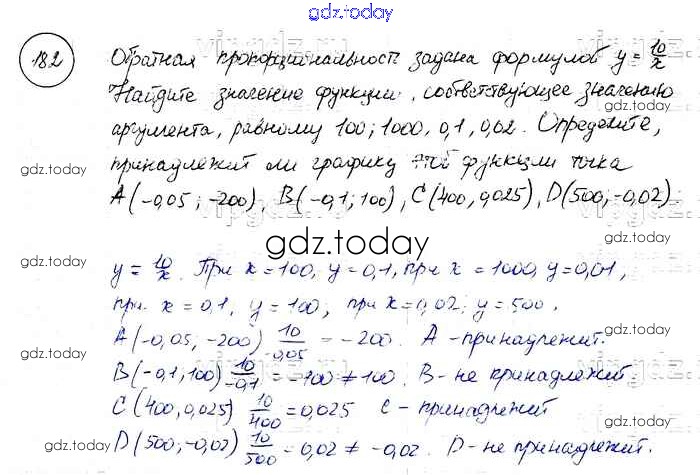 gdz.today
182 Обратная пропорциональность задана формулой y = 10/x
Найдите значение функции, соответствующее значению
gdz.today
аргумента, равному 100; 1000, 0,1, 0,02. Определите,
gdz.today принадлежит ли графику этой функции точка gdz.today
A(-0,05; -200), B(-0,1; 100), C(400, 0,025), D(500, -0,02)
gdz.today
gdz.today y = 10/x. При x = 100, y = 0,1, при x = 1000, y = 0,01, gdz.today
при x = 0,1, y = 100, при x = 0,02; y = 500.
A(-0,05; -200) 10/0,05 = -200. A - принадлежит.
gdz.today gdz.today
B(-0,1, 100) 10/-0,1 = -100 ≠ 100. B - не принадлежит.
C(400, 0,025) 10/400 = 0,025 C - принадлежит
gdz.today D(500; -0,02) 10/500 = 0,02 ≠ -0,02. D - не принадлежит. gdz.today